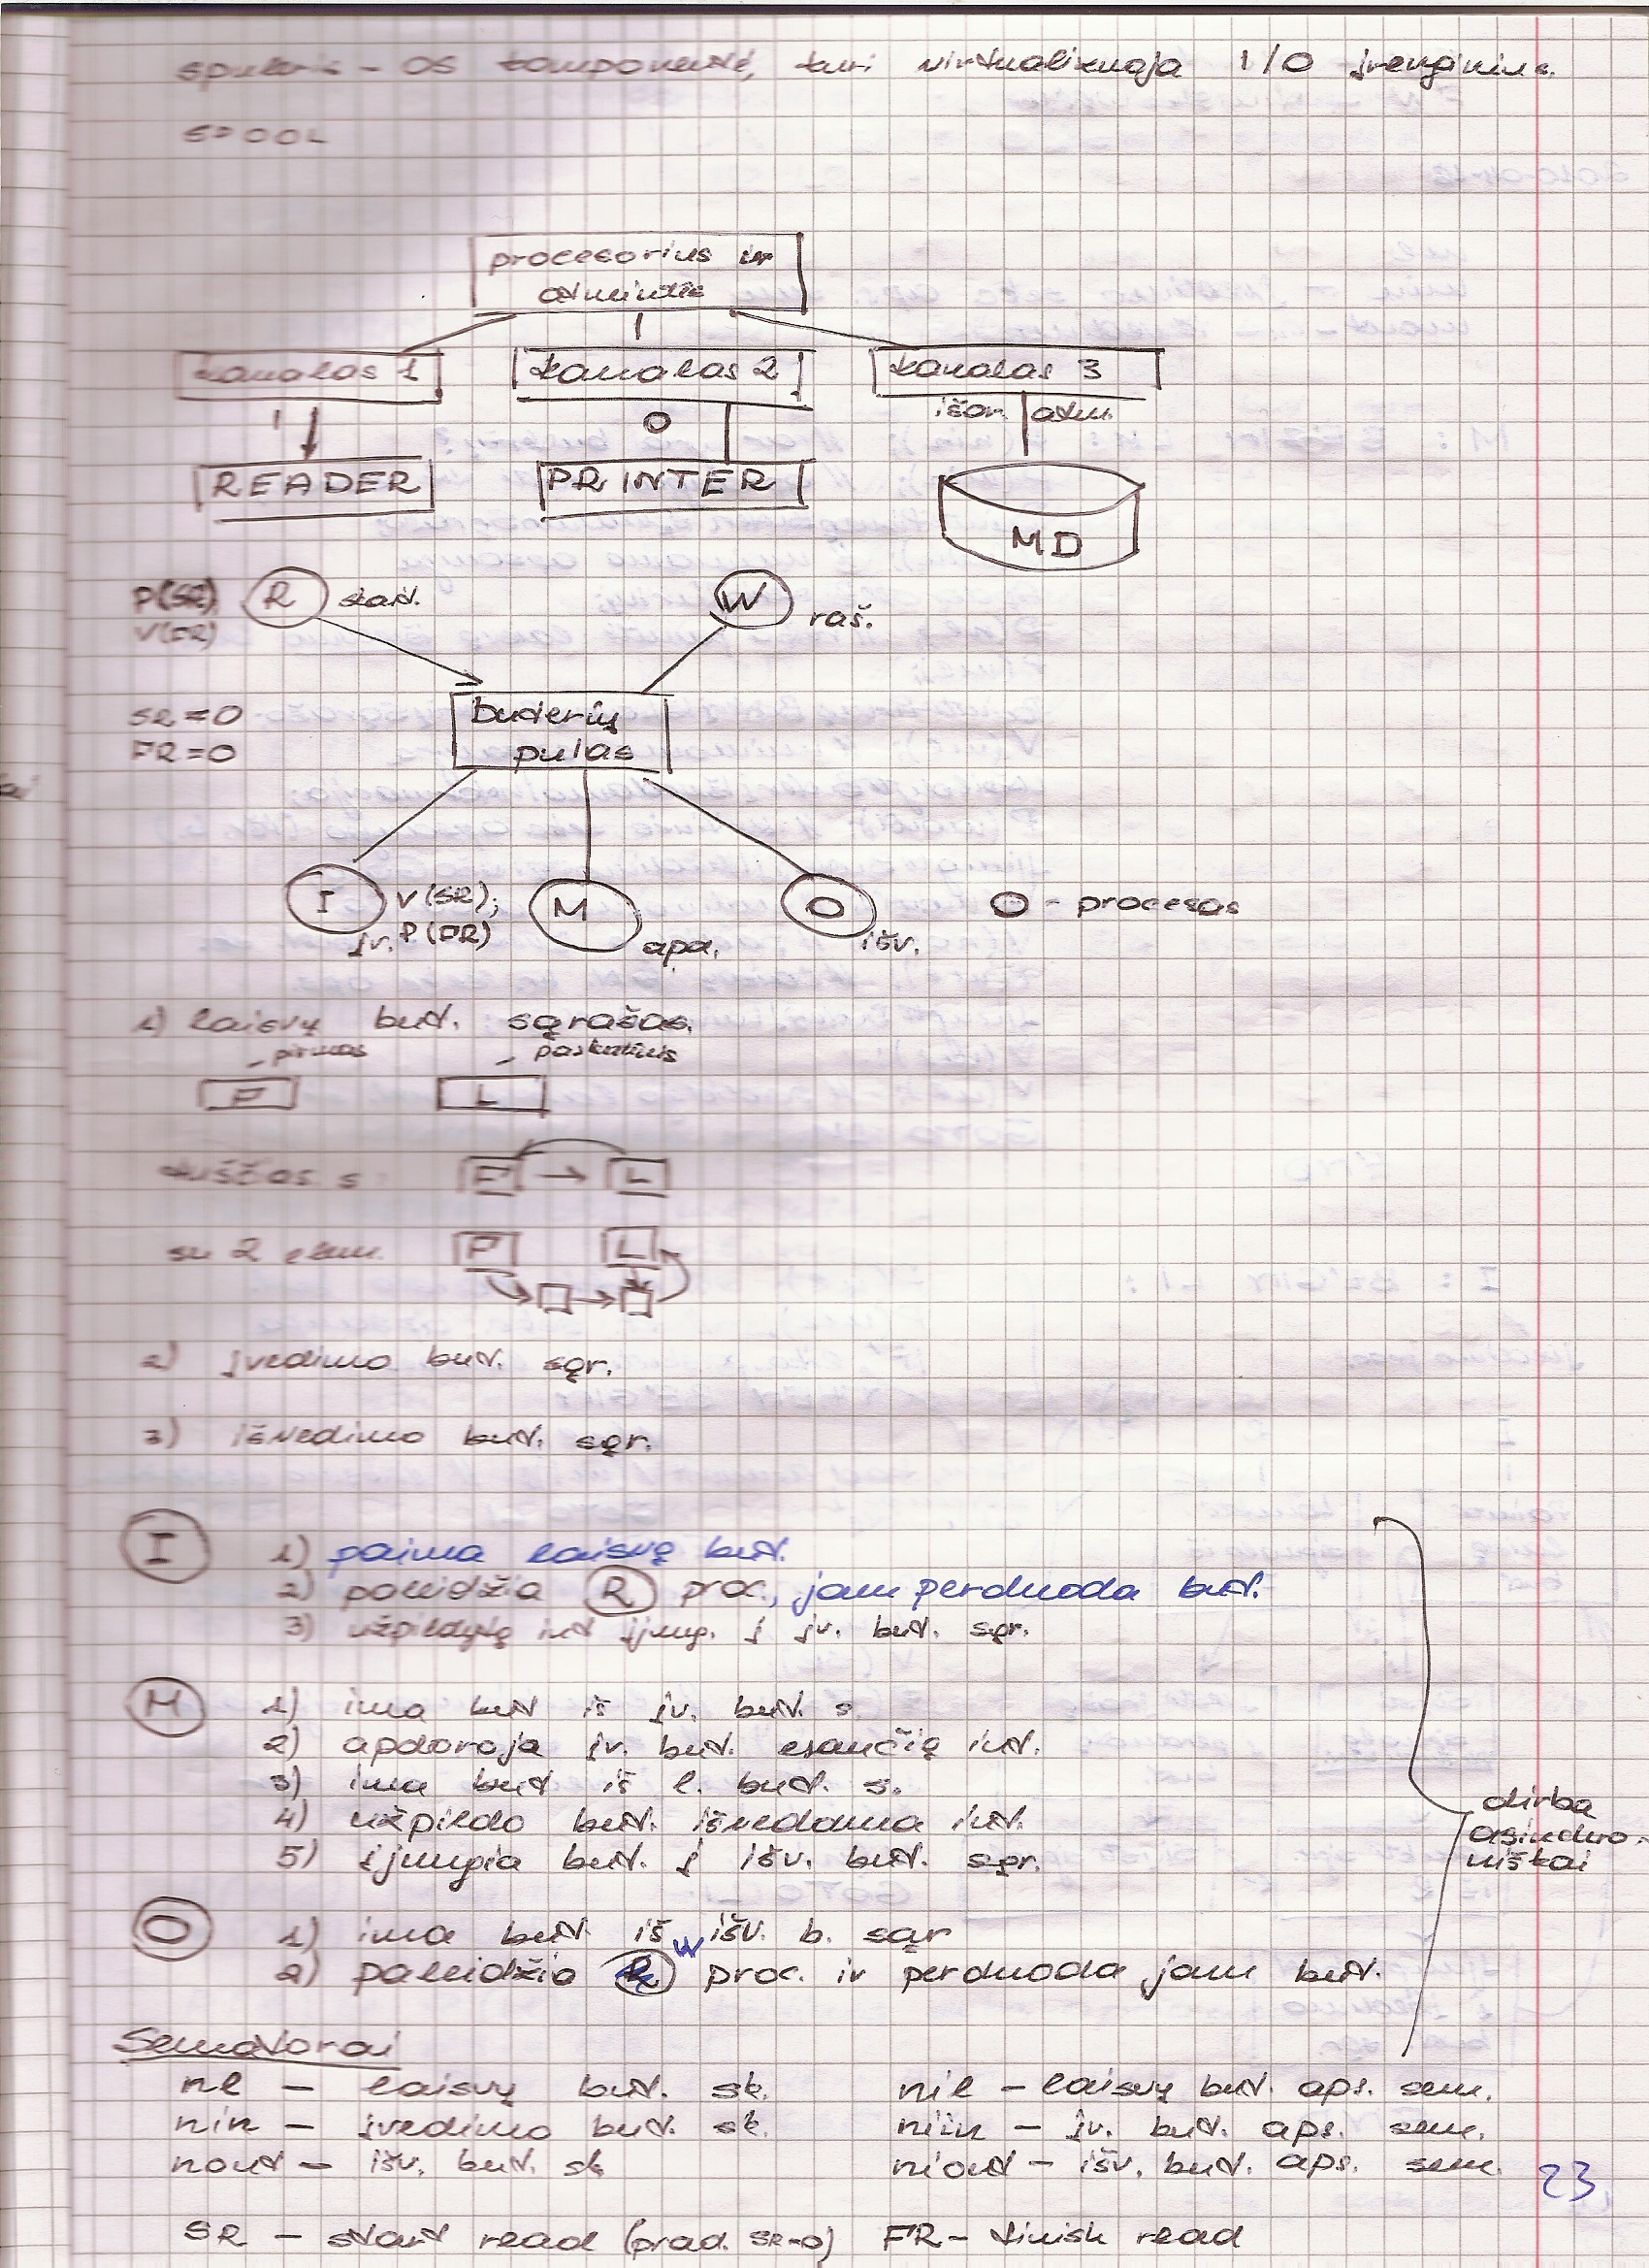 spuleris – OS komponentė, kuri virtualizuoja I/O įrenginius.
SPOOL
procesorius ir
atmintis
kanalas 1 kanalas 2 kanalas 3
I O išor. atm.
READER PRINTER MD
P(SR) R skait. W raš.
V(FR)
SR = 0 buferių
FR = 0 pulas
I V(SR); M O O – procesas
įv. P(FR) apd. išv.
1) laisvų buf. sąrašas.
– pirmas – paskutinis
F L
tuščias s. F → L
su 2 elem. F L
2) įvedimo buf. sąr.
3) išvedimo buf. sąr.
I 1) paima laisvą buf.
2) paleidžia R proc., jam perduoda buf.
3) užpildytą inf įjung. į įv. buf. sąr.
M 1) ima buf iš įv. buf. s.
2) apdoroja įv. buf. esančią inf.
3) ima buf iš l. buf. s.
4) užpildo buf. išvedama inf.
5) įjungia buf. į išv. buf. sąr.
dirba
asinchro-
niškai
O 1) ima buf. iš išv. b. sąr
2) paleidžia W proc. ir perduoda jam buf.
Semaforai
nl – laisvų buf. sk. nil – laisvų buf. aps. sem.
nin – įvedimo buf. sk. niin – įv. buf. aps. sem.
nout – išv. buf. sk niout – išv. buf. aps. sem.
23
SR – start read (prad. SR=0) FR – finish read